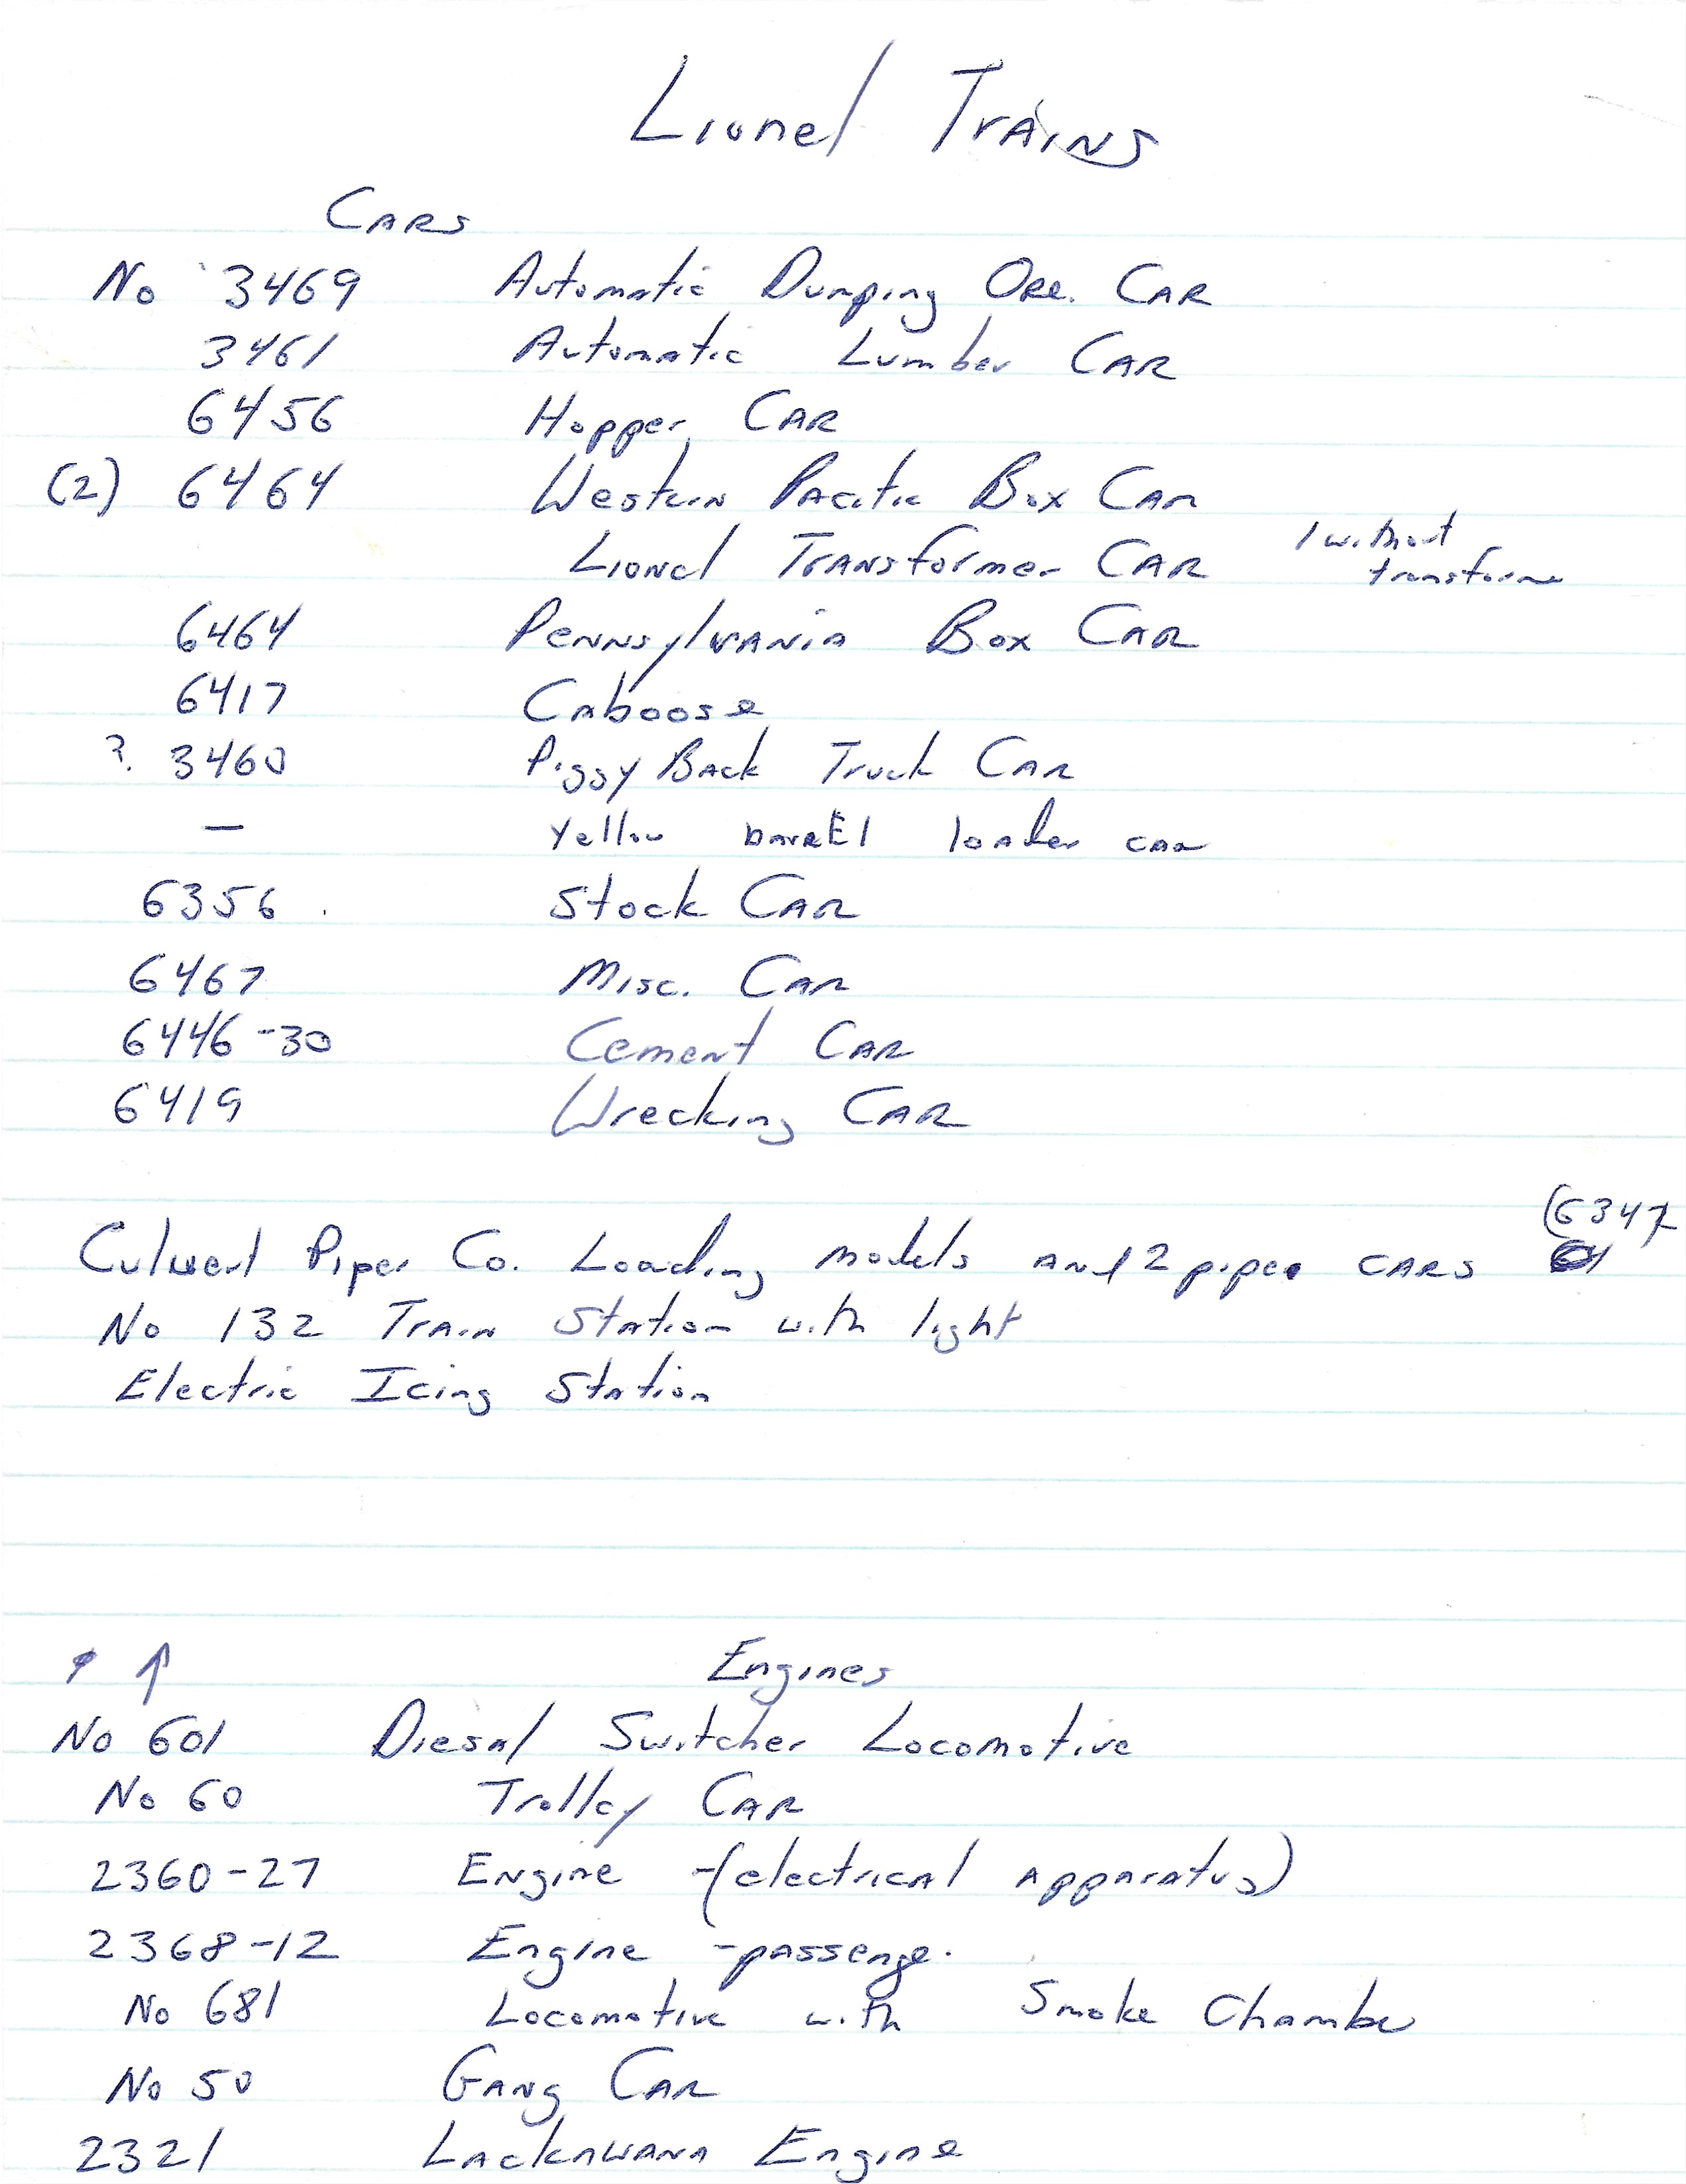 Lionel Trains
Cars
No 3469 Automatic Dumping Ore. Car
3461 Automatic Lumber Car
6456 Hopper Car
(2) 6464 Western Pacific Box Car
Lionel Transformer Car 1 without transforme
6464 Pennsylvania Box Car
6417 Caboose
? 3460 Piggy Back Truck Car
— Yellow barrel loader car
6356 Stock Car
6467 Misc. Car
6446-30 Cement Car
6419 Wrecking Car
(6347
Culvert Piper Co. Loading models and 2 pipe cars
No 132 Train Station with light
Electric Icing Station
↑ Engines
No 601 Diesal Switcher Locomotive
No 60 Trolley Car
2360-27 Engine -(electrical apparatus)
2368-12 Engine -passenge.
No 681 Locomotive with Smoke Chamber
No 50 Gang Car
2321 Lacknwana Engine